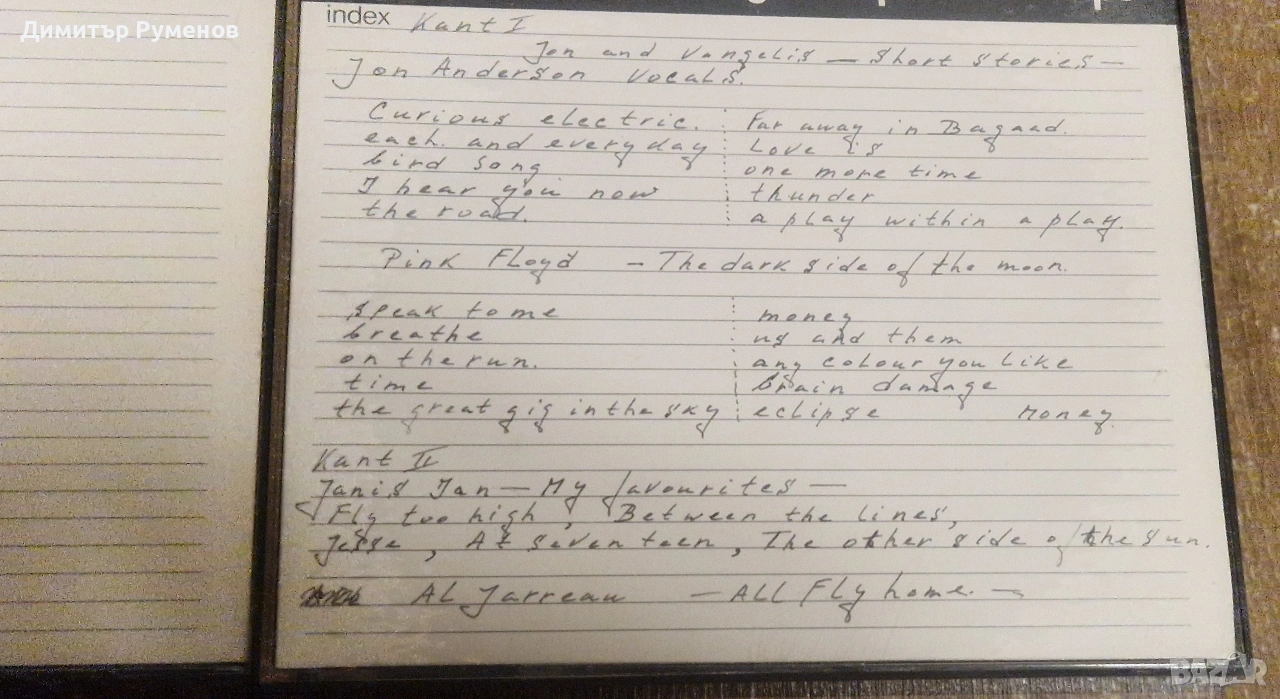 Димитър Руменов
index Kant I
Jon and Vangelis — Short stories —
Jon Anderson Vocals.
Curious electric. Far away in Bagaad.
each. and every day Love is
bird song one more time
I hear you now thunder
the road. a play within a play.
Pink Floyd – The dark side of the moon.
speak to me money
breathe us and them
on the run. any colour you like
time brain damage
the great gig in the sky eclipse Money
Kant II
Janis Jan — My favourites —
Fly too high, Between the lines,
Jesse, At seventeen, The other side of the sun.
AL Jarreau — ALL Fly home. —
BAZAR